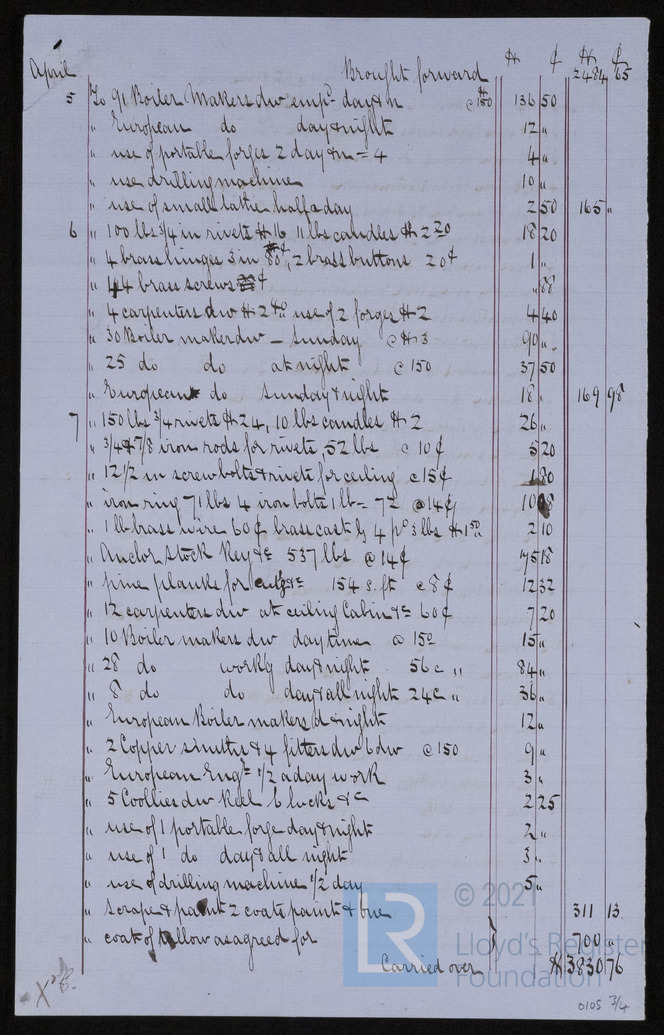 $ ¢ $ ¢
April Brought forward 2484 65
5 To 91 Boiler Makers dw emp. day & n @ $150 136 50
" European do day & night 12 "
" use of portable forges 2 day & n = 4 4 "
" use drilling machine 10 "
" use of small lathe half a day 2 50 165 "
6 " 100 lbs 3/4 in rivets $16 11 lbs candles $2 20 18 20
" 4 brass hinges 3 in 80¢, 2 brass buttons 20¢ 1 "
" 44 brass screws ¢ " 88
" 4 carpenters dw $2 40 use of 2 forges $2 4 40
" 30 Boiler maker dw – Sunday @ $3 90 "
" 25 do do at night @ 150 37 50
" European do Sunday & night 18 " 169 98
7 " 150 lbs 3/4 rivets $24, 10 lbs candles $2 26 "
" 3/4 & 7/8 iron rods for rivets, 52 lbs @ 10¢ 5 20
" 12 1/2 in screw bolts & rivets for ceiling @ 15¢ 1 80
" iron ring 71 lbs 4 iron bolts 1 lb = 72 @ 14¢ 10 08
" 1 lb brass wire 60¢ brass cast g 4 ps 3 lbs $1 50 2 10
" Anchor Stock Key &c 537 lbs @ 14¢ 75 18
" pine planks for &c 154 s. ft @ 8¢ 12 32
" 12 carpenters dw at ceiling Cabin &c 60¢ 7 20
" 10 Boiler makers dw day time @ 150 15 "
" 28 do workg day & night 56 @ " 84 "
" 8 do do day & all night 24 @ " 36 "
" European Boiler makers d & night 12 "
" 2 Copper smiths & 4 fitters dw 6 dw @ 150 9 "
" European Engr 1/2 a day work 3 "
" 5 Coollies dw Keel blocks &c 2 25
" use of 1 portable forge day & night 2 "
" use of 1 do day & all night 3 "
" use of drilling machine 1/2 day 5 "
" Scrape & paint 2 coats paint & one 311 13
" coat of tallow as agreed for 700 "
Carried over $ 3830 76
0105 3/4
© 2021
LR
Lloyd's Register
Foundation